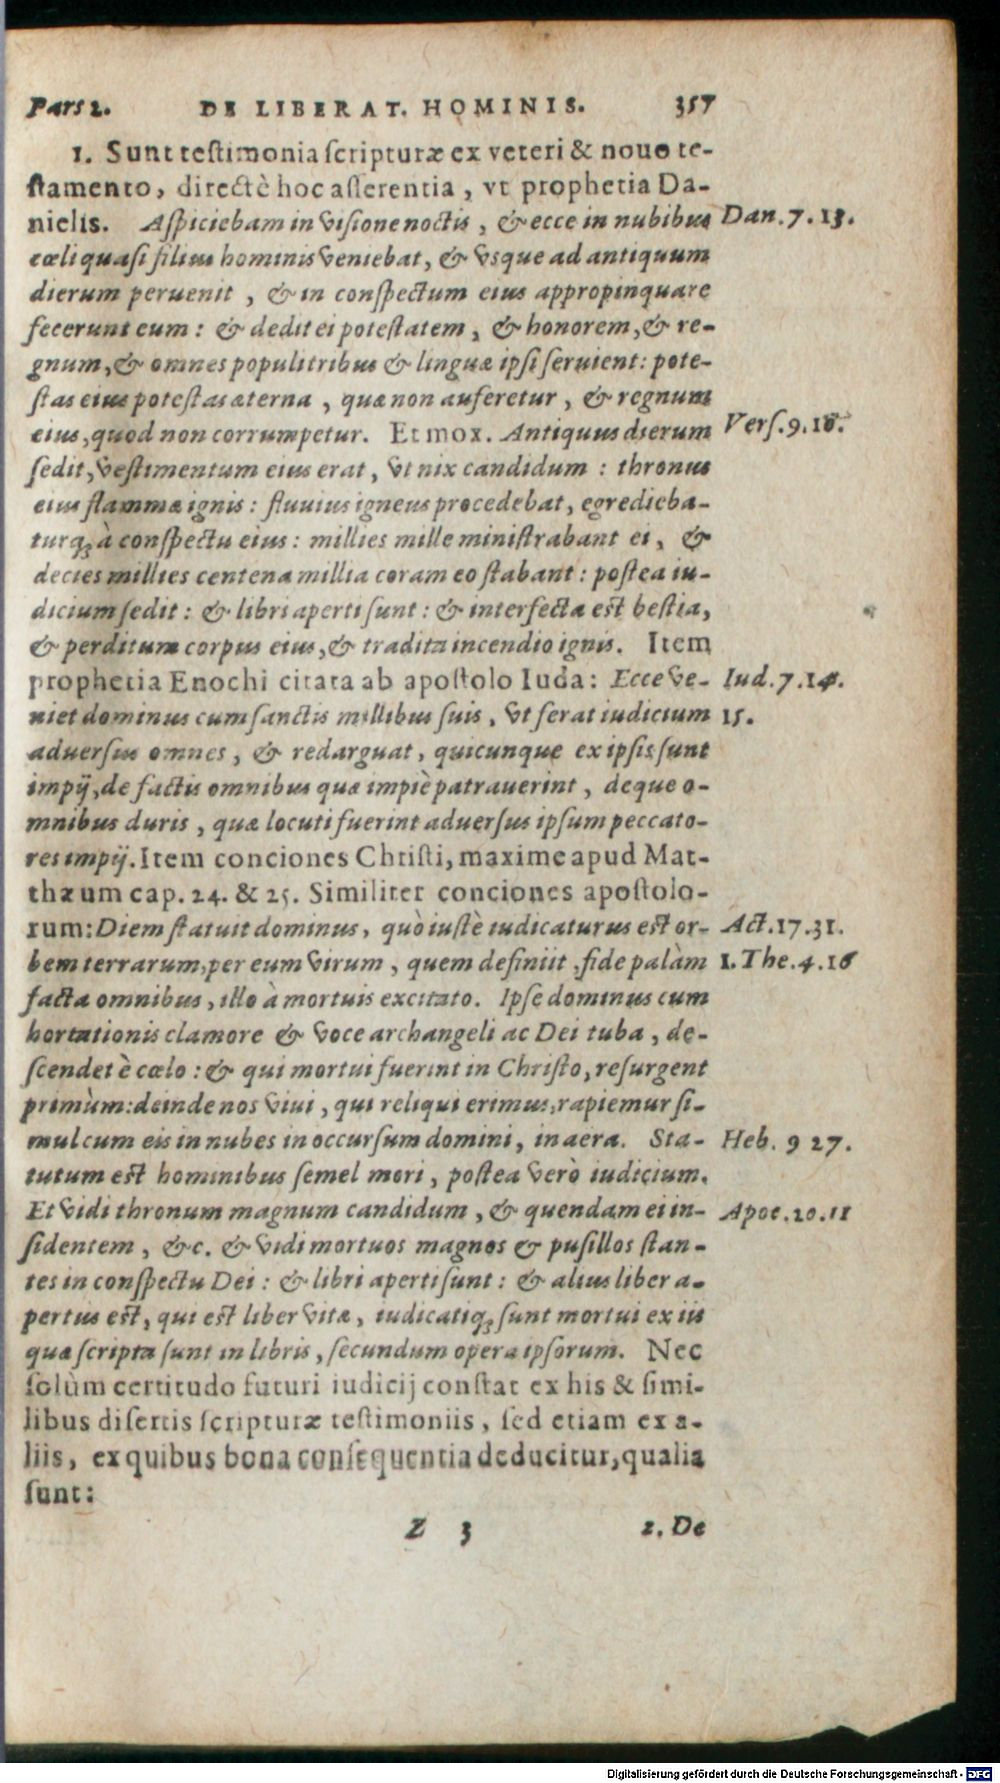 Pars 2. DE LIBERAT. HOMINIS. 357
1. Sunt testimonia scripturæ ex veteri & nouo te-
stamento, directè hoc asserentia, vt prophetia Da-
nielis. Aspiciebam in visione noctis, & ecce in nubibus Dan. 7. 13.
cœli quasi filius hominis veniebat, & vsque ad antiquum
dierum peruenit, & in conspectum eius appropinquare
fecerunt eum: & dedit ei potestatem, & honorem, & re-
gnum, & omnes populi tribus & linguæ ipsi seruient: pote-
stas eius potestas æterna, quæ non auferetur, & regnum
eius, quod non corrumpetur. Et mox. Antiquus dierum Vers. 9. 10.
sedit, vestimentum eius erat, vt nix candidum: thronus
eius flammæ ignis: fluuius igneus procedebat, egredieba-
turq́₃ à conspectu eius: millies mille ministrabant ei, &
decies millies centena millia coram eo stabant: postea iu-
dicium sedit: & libri aperti sunt: & interfecta est bestia,
& perditum corpus eius, & tradita incendio ignis. Item
prophetia Enochi citata ab apostolo Iuda: Ecce ve- Iud. 7. 14.
niet dominus cum sanctis millibus suis, vt ferat iudicium 15.
aduersus omnes, & redarguat, quicunque ex ipsis sunt
impij, de factis omnibus quæ impiè patrauerint, deque o-
mnibus duris, quæ locuti fuerint aduersus ipsum peccato-
res impij. Item conciones Christi, maxime apud Mat-
thæum cap. 24. & 25. Similiter conciones apostolo-
rum: Diem statuit dominus, quò iustè iudicaturus est or- Act. 17. 31.
bem terrarum, per eum virum, quem definiit, fide palàm 1. The. 4. 16
facta omnibus, illo à mortuis excitato. Ipse dominus cum
hortationis clamore & voce archangeli ac Dei tuba, de-
scendet è cœlo: & qui mortui fuerint in Christo, resurgent
primùm: deinde nos viui, qui reliqui erimus, rapiemur si-
mul cum eis in nubes in occursum domini, in aera. Sta- Heb. 9 27.
tutum est hominibus semel mori, postea verò iudicium.
Et vidi thronum magnum candidum, & quendam ei in- Apoc. 20. 11
sidentem, &c. & vidi mortuos magnos & pusillos stan-
tes in conspectu Dei: & libri aperti sunt: & alius liber a-
pertus est, qui est liber vitæ, iudicatiq́₃ sunt mortui ex iis
quæ scripta sunt in libris, secundum opera ipsorum. Nec
solùm certitudo futuri iudicij constat ex his & simi-
libus disertis scripturæ testimoniis, sed etiam ex a-
liis, ex quibus bona consequentia deducitur, qualia
sunt:
Z 3 2. De
Digitalisierung gefördert durch die Deutsche Forschungsgemeinschaft - DFG